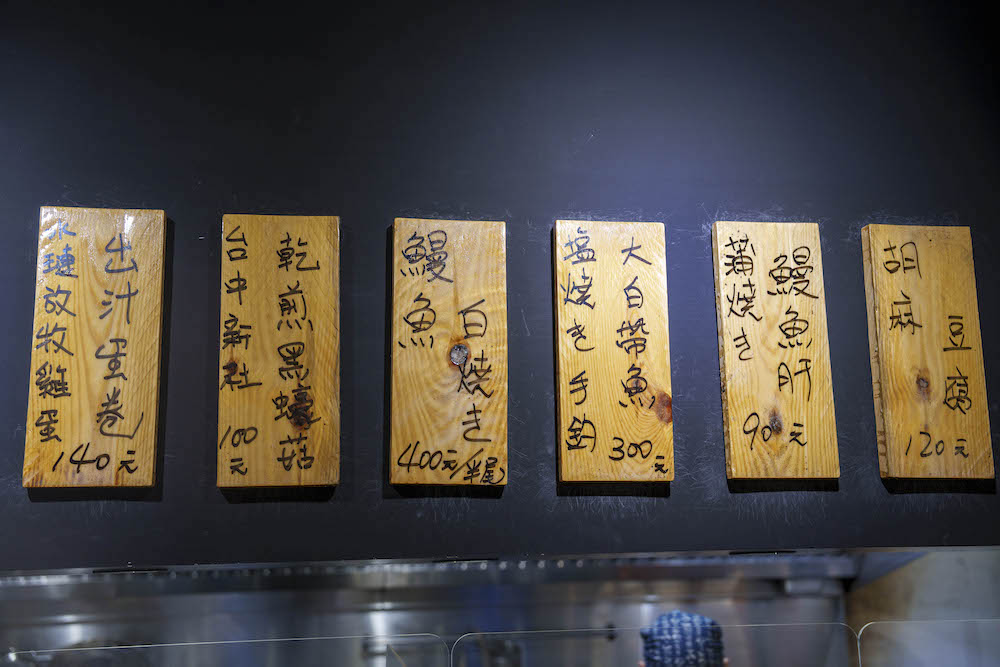 出汁蛋卷
璉放牧雞蛋
140元
乾煎黑蠔菇
台中新社
100元
鰻魚
白燒き
400元/半尾
大白帶魚
塩燒き手釣
300元
鰻魚肝
蒲燒き
90元
胡麻
豆腐
120元